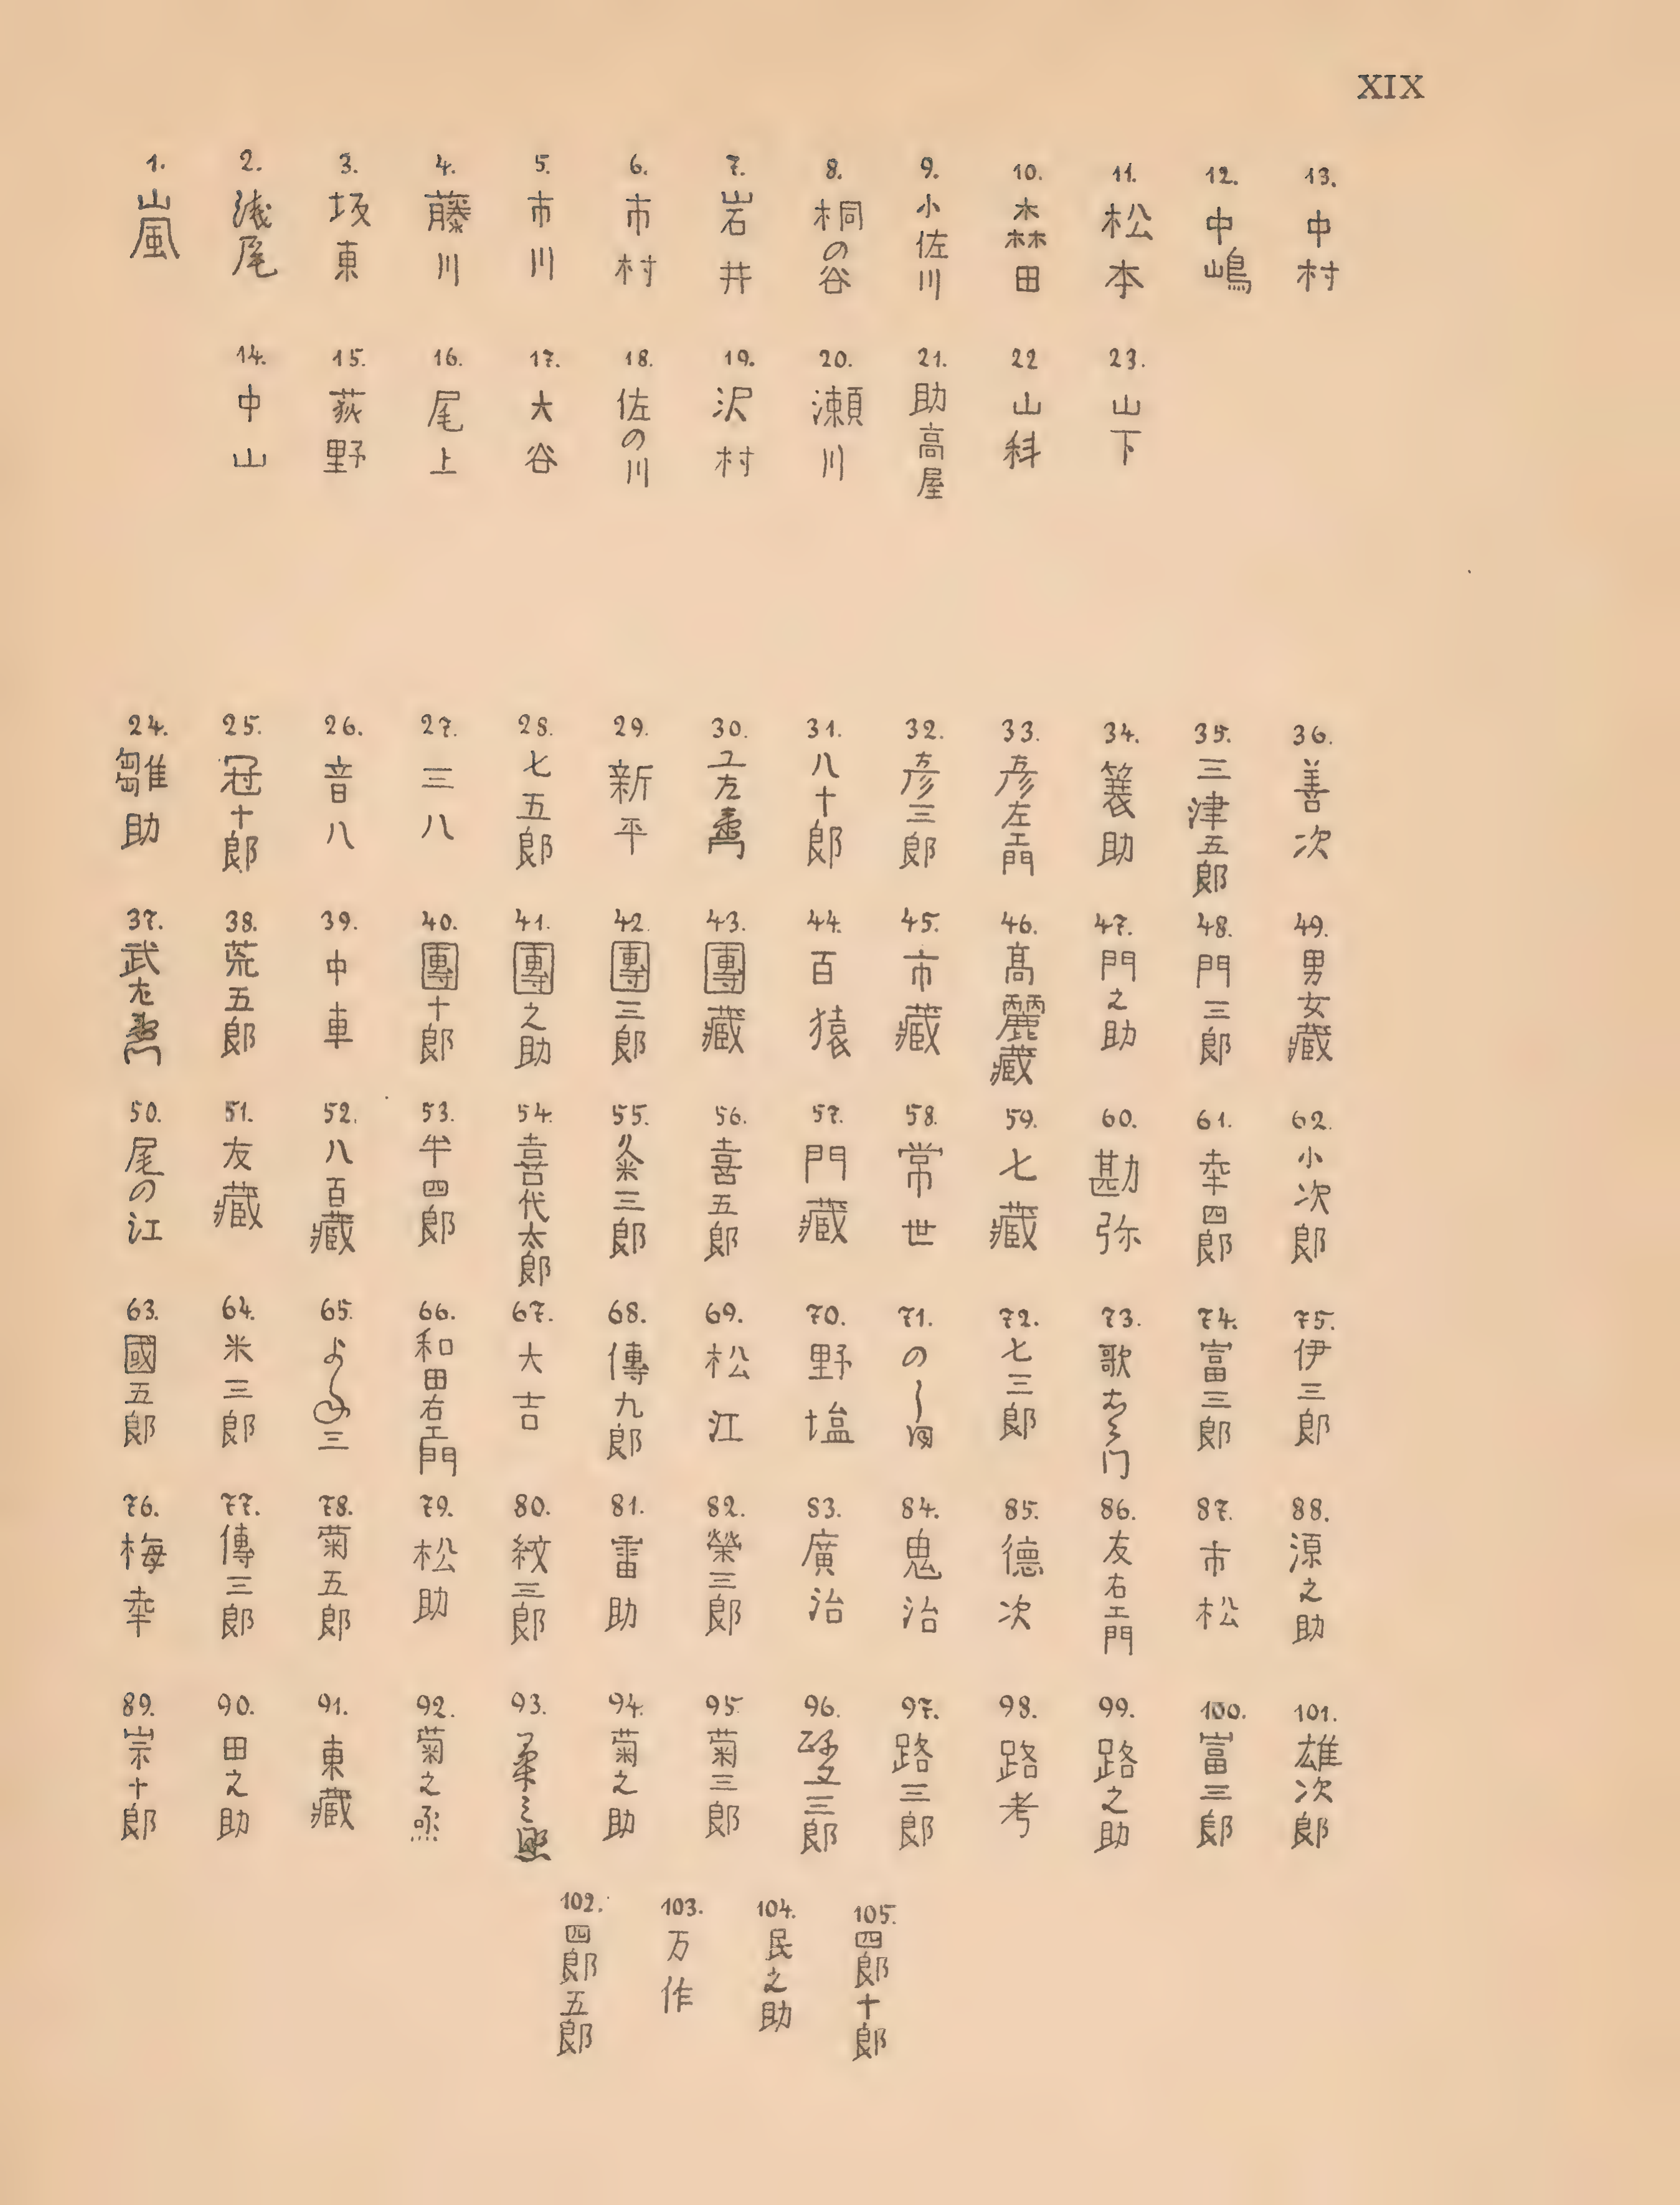 XIX
1. 嵐
2. 浅尾
3. 坂東
4. 藤川
5. 市川
6. 市村
7. 岩井
8. 桐の谷
9. 小佐川
10. 森田
11. 松本
12. 中嶋
13. 中村
14. 中山
15. 荻野
16. 尾上
17. 大谷
18. 佐の川
19. 沢村
20. 瀬川
21. 助高屋
22 山科
23. 山下
24. 雛助
25. 冠十郎
26. 音八
27. 三八
28. 七五郎
29. 新平
30.
31. 八十郎
32. 彦三郎
33. 彦左エ門
34. 簑助
35. 三津五郎
36. 善次
37. 武左
38. 荒五郎
39. 中車
40. 團十郎
41. 團之助
42. 團三郎
43. 團藏
44. 百猿
45. 市藏
46. 高麗藏
47. 門之助
48. 門三郎
49. 男女藏
50. 尾の江
51. 友藏
52. 八百藏
53. 半四郎
54. 喜代太郎
55. 粂三郎
56. 喜五郎
57. 門藏
58. 常世
59. 七藏
60. 勘弥
61. 幸四郎
62. 小次郎
63. 國五郎
64. 米三郎
65. 三
66. 和田右エ門
67. 大吉
68. 傳九郎
69. 松江
70. 野塩
71. の
72. 七三郎
73. 歌
74. 富三郎
75. 伊三郎
76. 梅幸
77. 傳三郎
78. 菊五郎
79. 松助
80. 紋三郎
81. 雷助
82. 榮三郎
83. 廣治
84. 鬼治
85. 德次
86. 友右エ門
87. 市松
88. 源之助
89. 宗十郎
90. 田之助
91. 東藏
92. 菊之
93.
94. 菊之助
95. 菊三郎
96. 三郎
97. 路三郎
98. 路考
99. 路之助
100. 富三郎
101. 雄次郎
102. 四郎五郎
103. 万作
104. 民之助
105. 四郎十郎